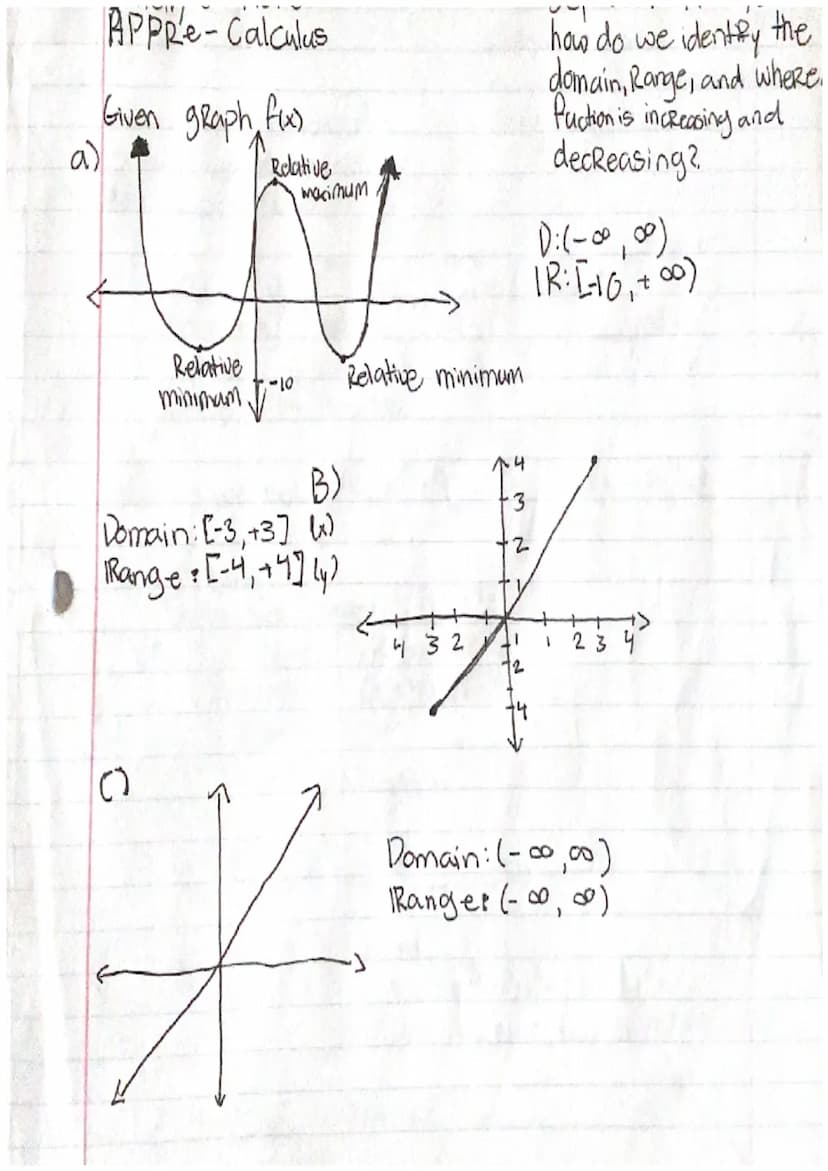 APPre-Calculus
how do we identify the
domain, Range, and where
fuction is increasing and
decreasing?
Given graph f(x)
a)
Relative
maximum
D:(-∞,∞)
IR:[-10,+∞)
Relative
minimum
-10
Relative minimum
B)
Domain:[-3,+3] (x)
IRange:[-4,+4] (y)
4
3
2
1
4 3 2 1 1 2 3 4
2
4
C)
Domain:(-∞,∞)
IRange:(-∞,∞)